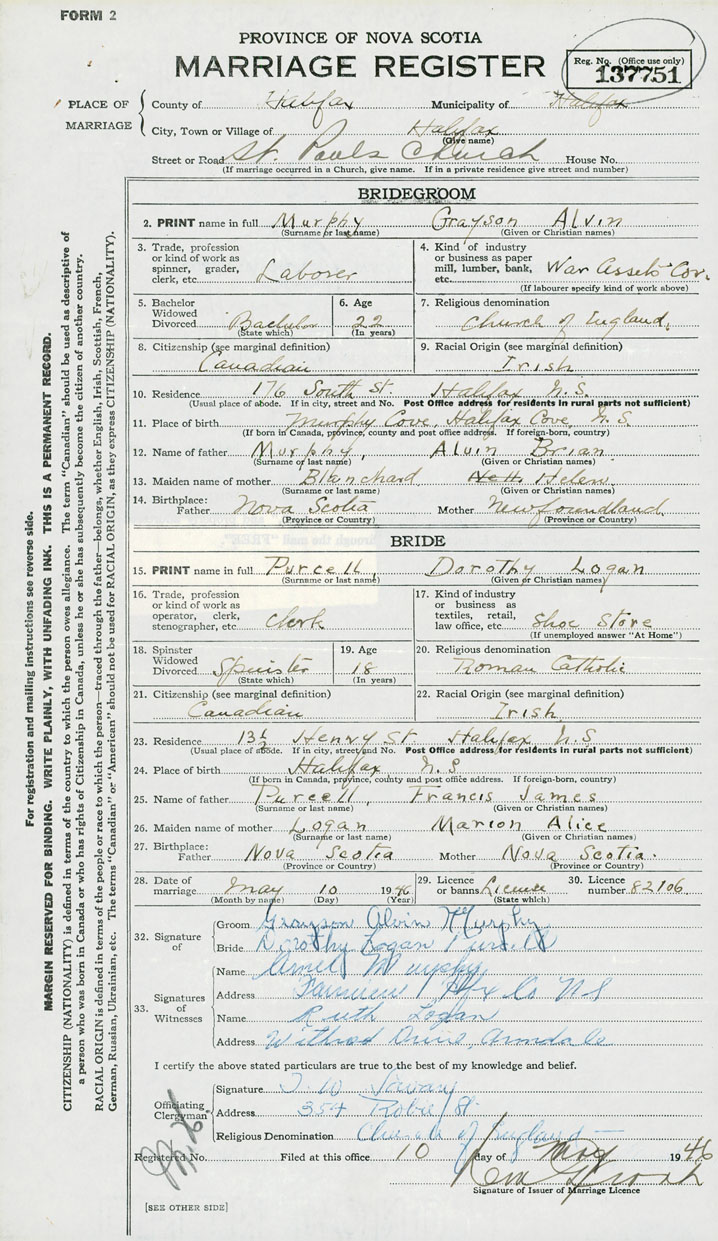 FORM 2
PROVINCE OF NOVA SCOTIA
MARRIAGE REGISTER
Reg. No. (Office use only)
137751
PLACE OF MARRIAGE
County of Halifax Municipality of Halifax
City, Town or Village of Halifax
(Give name)
Street or Road St. Pauls Church House No.
(If marriage occurred in a Church, give name. If in a private residence give street and number)
BRIDEGROOM
2. PRINT name in full Murphy Grayson Alvin
(Surname or last name) (Given or Christian names)
3. Trade, profession or kind of work as spinner, grader, clerk, etc. Laborer
4. Kind of industry or business as paper mill, lumber, bank, etc. War Assets Cor.
(If labourer specify kind of work above)
5. Bachelor Widowed Divorced Bachelor
(State which)
6. Age 22
(In years)
7. Religious denomination
Church of England
8. Citizenship (see marginal definition)
Canadian
9. Racial Origin (see marginal definition)
Irish
10. Residence 176 South St. Halifax N.S.
(Usual place of abode. If in city, street and No. Post Office address for residents in rural parts not sufficient)
11. Place of birth Murphy Cove, Halifax Cove, N.S.
(If born in Canada, province, county and post office address. If foreign-born, country)
12. Name of father Murphy, Alvin Brian
(Surname or last name) (Given or Christian names)
13. Maiden name of mother Blanchard Helen
(Surname or last name) (Given or Christian names)
14. Birthplace:
Father Nova Scotia Mother Newfoundland
(Province or Country) (Province or Country)
BRIDE
15. PRINT name in full Purcell, Dorothy Logan
(Surname or last name) (Given or Christian names)
16. Trade, profession or kind of work as operator, clerk, stenographer, etc. Clerk
17. Kind of industry or business as textiles, retail, law office, etc. Shoe Store
(If unemployed answer "At Home")
18. Spinster Widowed Divorced Spinster
(State which)
19. Age 18
(In years)
20. Religious denomination
Roman Catholic
21. Citizenship (see marginal definition)
Canadian
22. Racial Origin (see marginal definition)
Irish
23. Residence 13½ Henry St. Halifax N.S
(Usual place of abode. If in city, street and No. Post Office address for residents in rural parts not sufficient)
24. Place of birth Halifax N.S
(If born in Canada, province, county and post office address. If foreign-born, country)
25. Name of father Purcell, Francis James
(Surname or last name) (Given or Christian names)
26. Maiden name of mother Logan Marion Alice
(Surname or last name) (Given or Christian names)
27. Birthplace:
Father Nova Scotia Mother Nova Scotia.
(Province or Country) (Province or Country)
28. Date of marriage May 10 1946
(Month by name) (Day) (Year)
29. Licence or banns License
(State which)
30. Licence number 82106
32. Signature of
Groom Grayson Alvin Murphy
Bride Dorothy Logan Purcell
33. Signatures of Witnesses
Name Murphy
Address Fairview Hfx Co NS
Name Ruth Logan
Address Drive, Armdale
I certify the above stated particulars are true to the best of my knowledge and belief.
Officiating Clergyman
Signature T. W. Savary
Address 354 Robie St.
Religious Denomination Church of England
Registered No. Filed at this office 10 day of May 1946
Signature of Issuer of Marriage Licence
[SEE OTHER SIDE]
For registration and mailing instructions see reverse side.
MARGIN RESERVED FOR BINDING. WRITE PLAINLY, WITH UNFADING INK. THIS IS A PERMANENT RECORD.
CITIZENSHIP (NATIONALITY) is defined in terms of the country to which the person owes allegiance. The term "Canadian" should be used as descriptive of
a person who was born in Canada or who has rights of Citizenship in Canada, unless he or she has subsequently become the citizen of another country.
RACIAL ORIGIN is defined in terms of the people or race to which the person—traced through the father—belongs, whether English, Irish, Scottish, French,
German, Russian, Ukrainian, etc. The terms "Canadian" or "American" should not be used for RACIAL ORIGIN, as they express CITIZENSHIP (NATIONALITY).